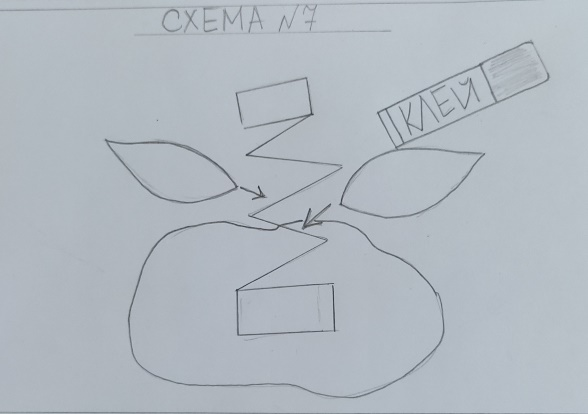 СХЕМА №7
КЛЕЙ